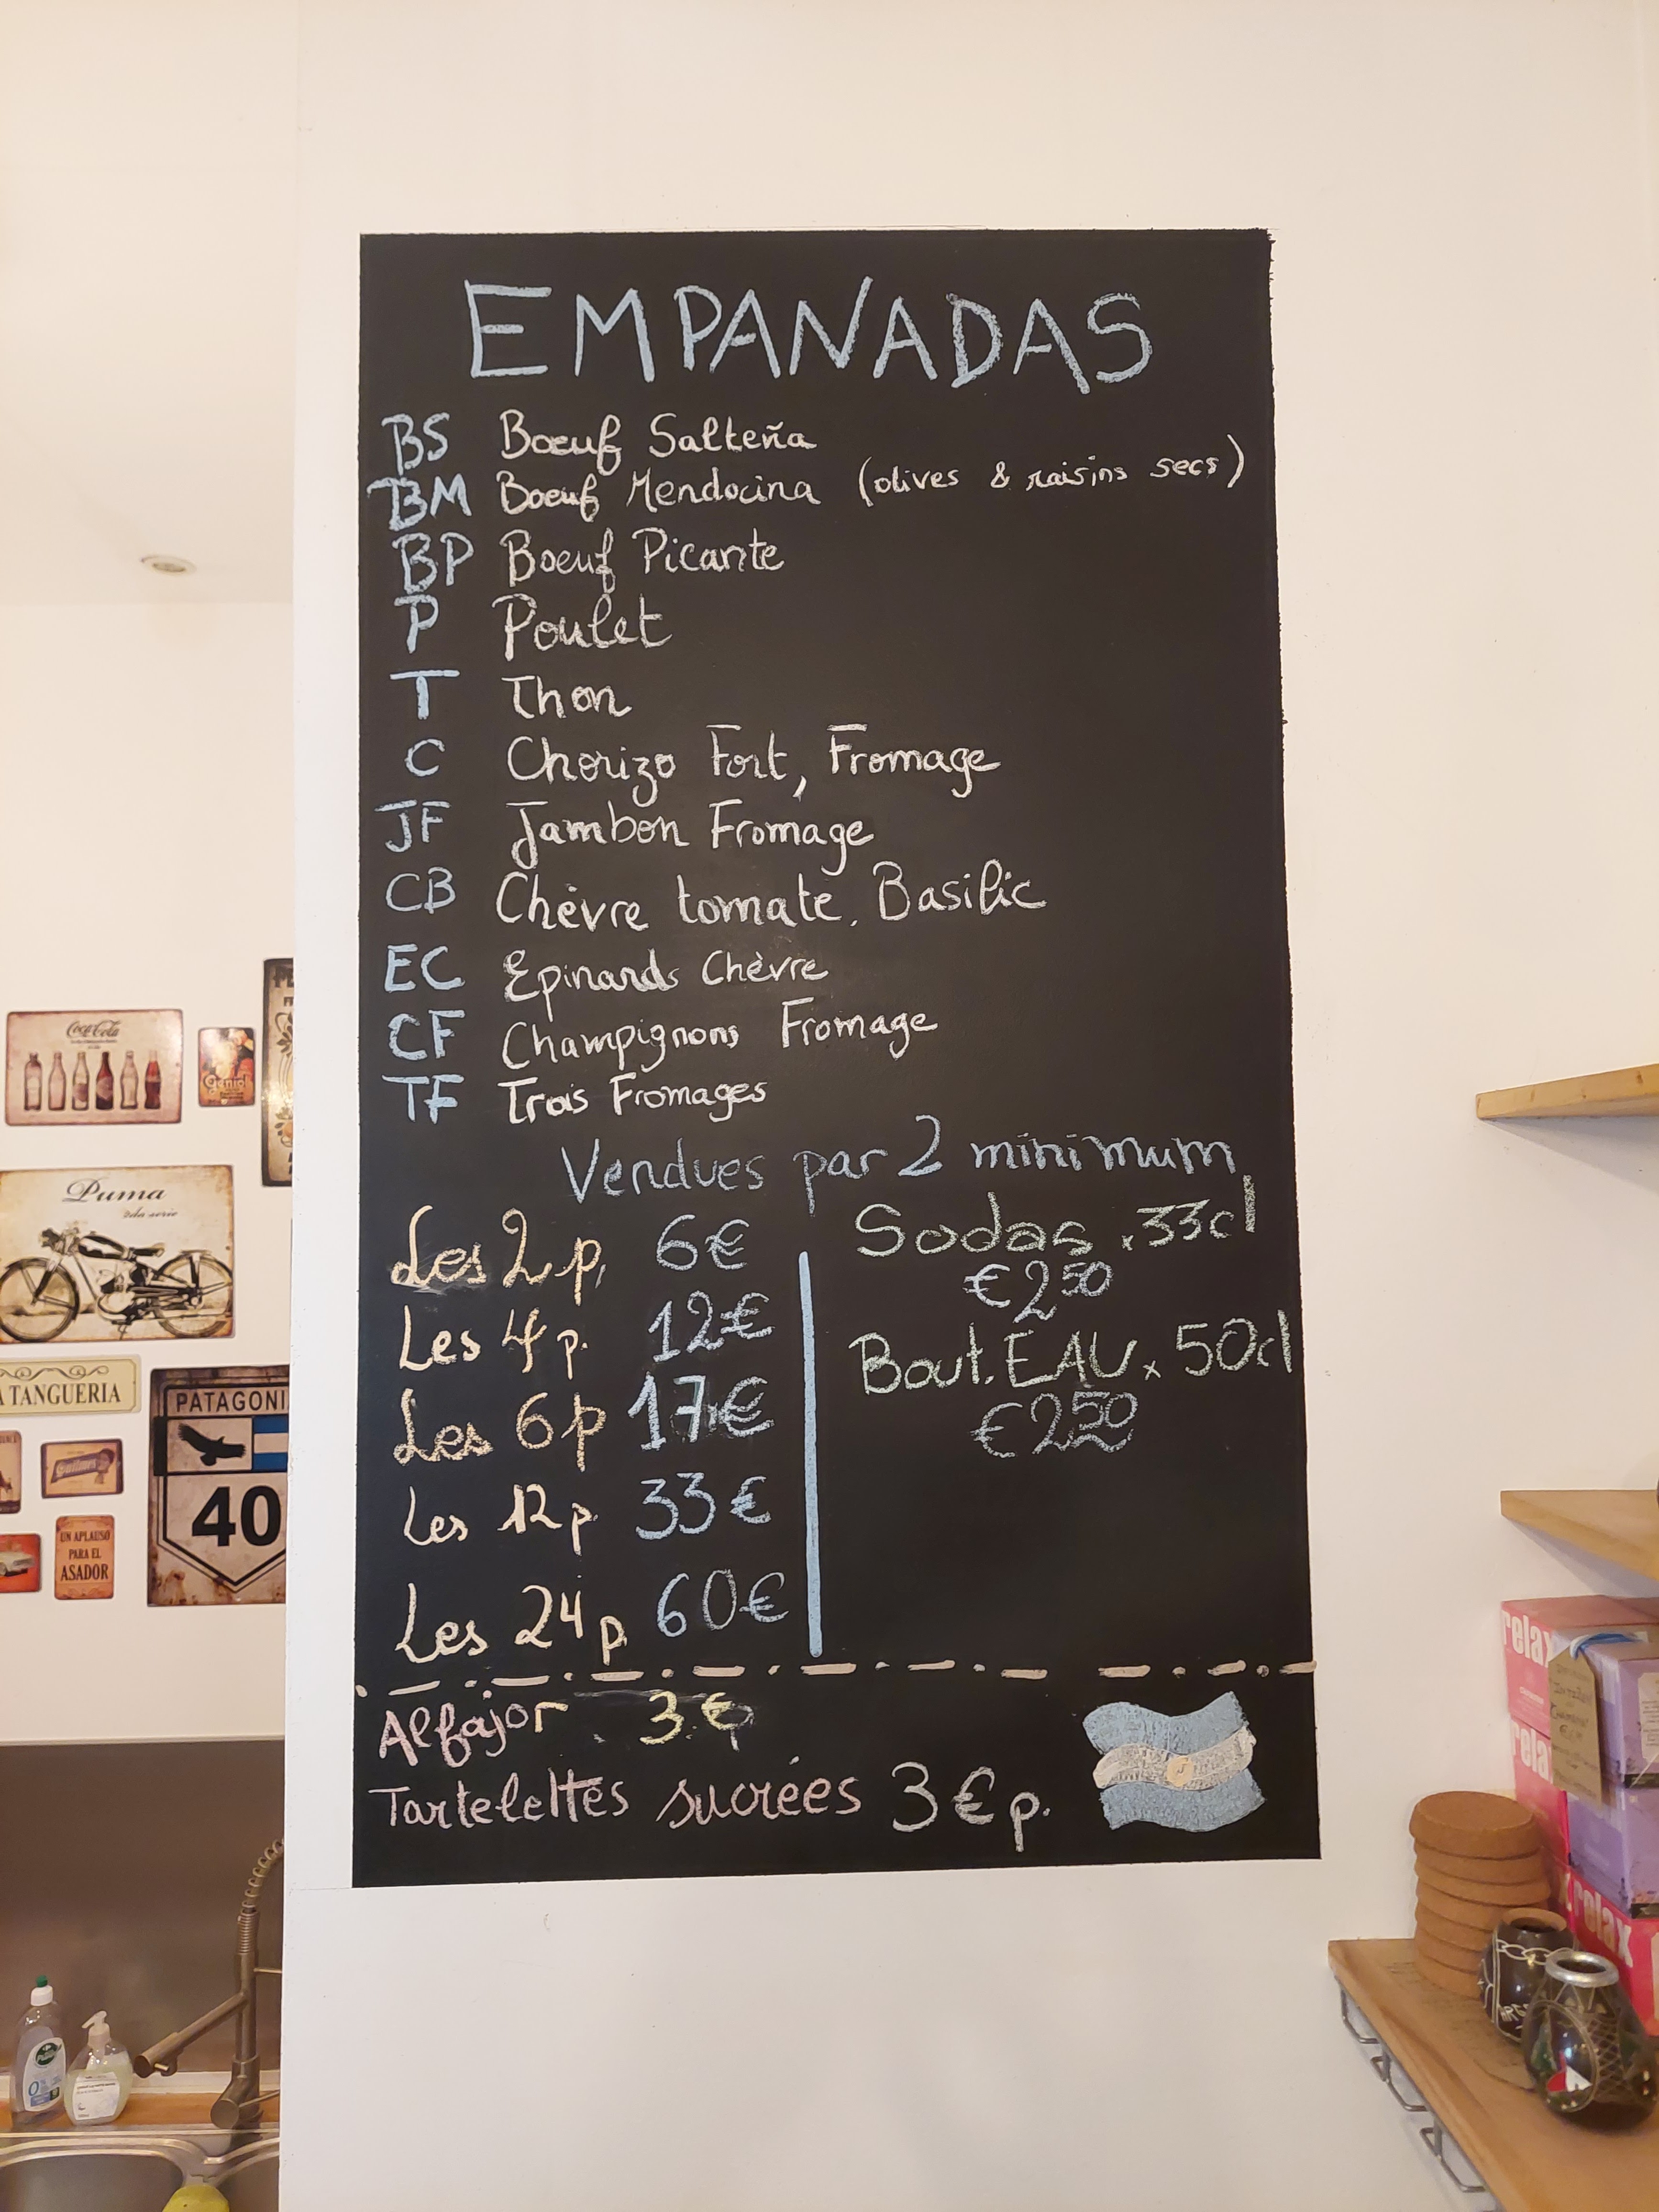 EMPANADAS
BS Boeuf Salteña
BM Boeuf Mendocina (olives & raisins secs)
BP Boeuf Picante
P Poulet
T Thon
C Chorizo Fort, Fromage
JF Jambon Fromage
CB Chèvre tomate, Basilic
EC Epinards Chèvre
CF Champignons Fromage
TF Trois Fromages
Vendues par 2 minimum
Les 2 p, 6€
Les 4 p. 12€
Les 6 p 17€
Les 12 p 33€
Les 24 p. 60€
Sodas x 33cl
€2,50
Bout. EAU x 50cl
€2,50
Alfajor 3 €
Tartelettes sucrées 3 € p.
Coca-Cola
Geniol
Puma
2da serie
A TANGUERIA
PATAGONI
40
Quilmes
UN APLAUSO
PARA EL
ASADOR
relax
relax
relax
0%